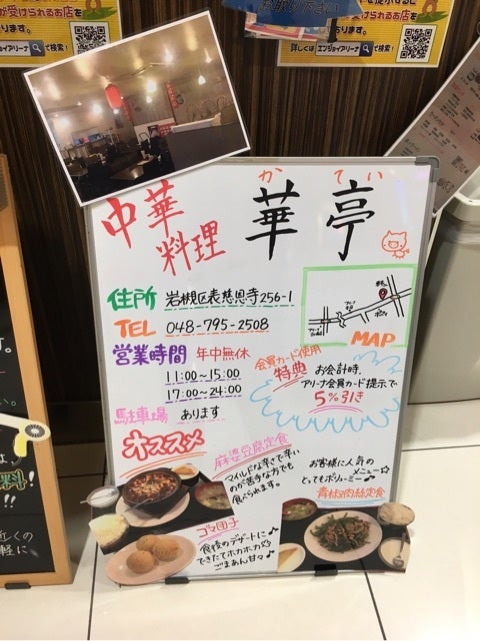 が受けられるお店を
おります。
で検索!
受けられるお店を
ります。
詳しくは エンジョイアリーナ で検索!
中華
料理
かてい
華亭
住所 岩槻区表慈恩寺256-1
TEL 048-795-2508
営業時間 年中無休
11:00~15:00
17:00~24:00
駐車場 あります
MAP
会員カード使用
特典
お会計時、
アリーナ会員カード提示で
5%引き
オススメ
麻婆豆腐定食
マイルドな辛さで辛い
のが苦手な方でも
食べられます。
お客様に人気の
メニュー☆
とってもボリューミー♪
青椒肉絲定食
ゴマ団子
食後のデザートに♪
できたてホカホカ☆
ごまあん甘々♪
す。
料!
!!
近くの
軽に